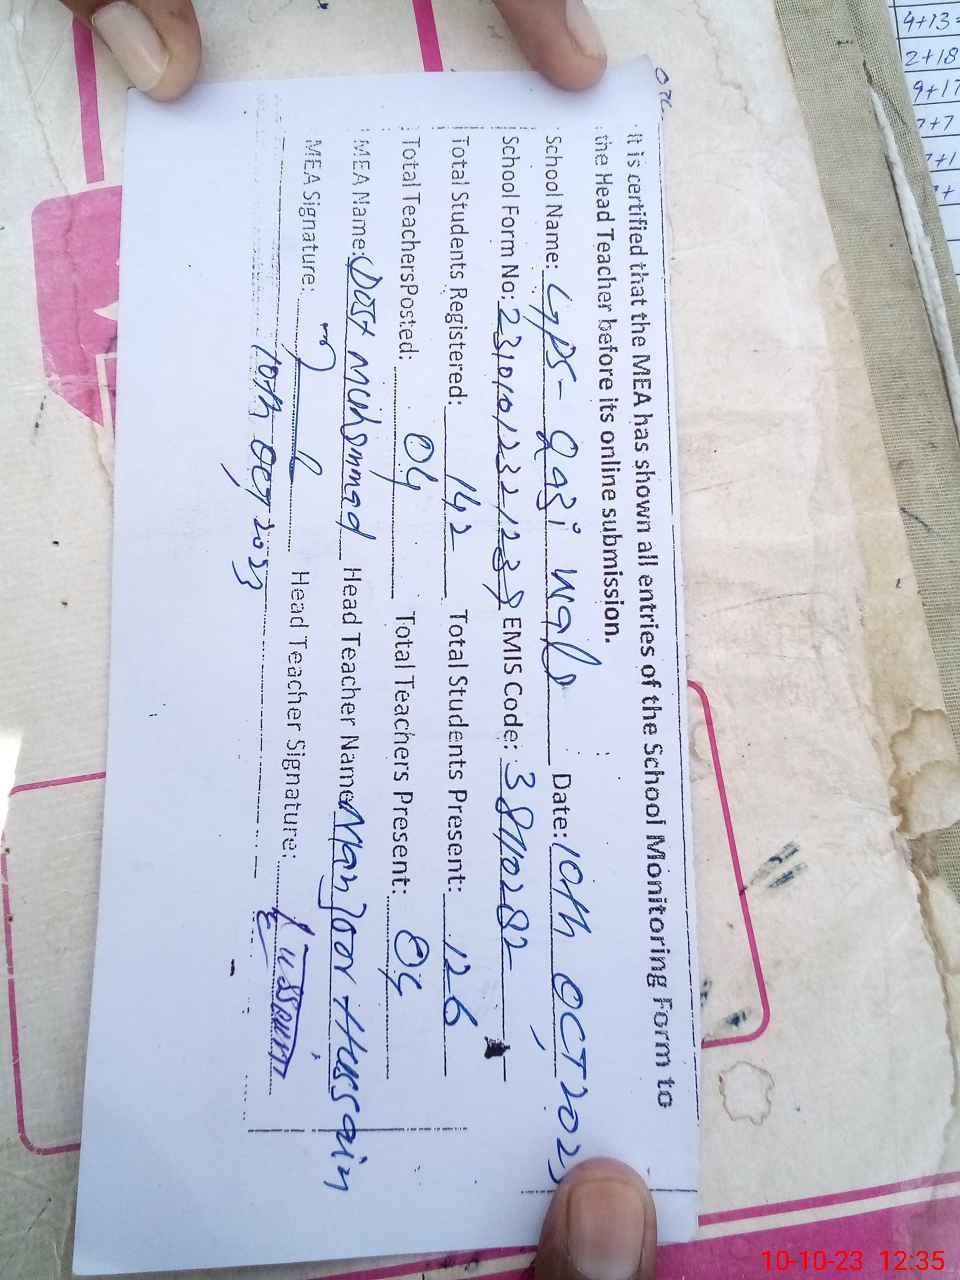 It is certified that the MEA has shown all entries of the School Monitoring Form to
the Head Teacher before its online submission.
School Name: GPS- Qazi wala Date: 10th OCT 202
School Form No: EMIS Code: 38110282
Total Students Registered: 142 Total Students Present: 126
Total TeachersPosted: 04 Total Teachers Present: 04
MEA Name: Dost Muhammad Head Teacher Name Manzoor Hussain
MEA Signature: Head Teacher Signature:
10th OCT 2023
4+13=
2+18
9+17
7+7
10-10-23 12:35